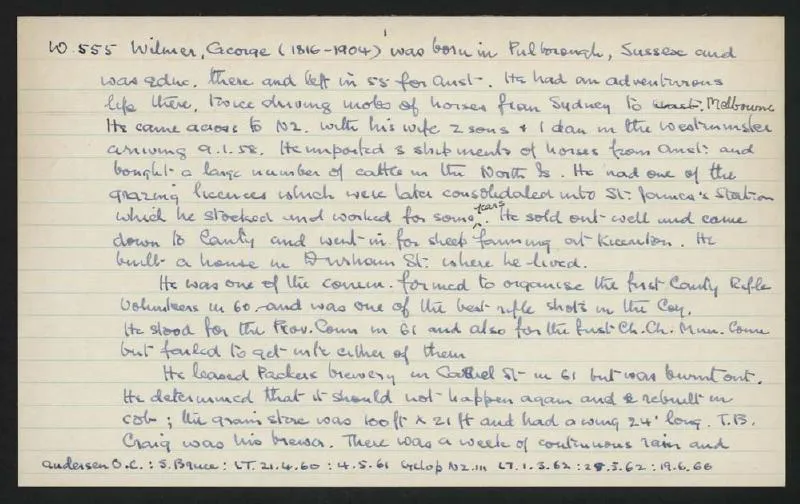 W 555 Wilmer, George (1816-1904) was born in Pulborough, Sussex and
was educ. there and left in 55 for Aust. He had an adventurous
life there, twice driving mobs of horses from Sydney to Melbourne
He came across to NZ. with his wife 2 sons & 1 dau in the Westminster
arriving 9.1.58. He imported 3 shipments of horses from Aust. and
bought a large number of cattle in the North Is. He had one of the
grazing licences which were later consolidated into St. James's Station
which he stocked and worked for some years. He sold out well and came
down to Canty and went in for sheep farming at Riccarton. He
built a house in Durham St. where he lived.
He was one of the comm. formed to organise the first Canty Rifle
Volunteers in 60, and was one of the best rifle shots in the Coy.
He stood for the Prov. Coun in 61 and also for the first Ch. Ch. Mun. Coun
but failed to get into either of them
He leased Packers brewery in Cashel St in 61 but was burnt out.
He determined that it should not happen again and rebuilt in
cob; the grain store was 100 ft x 21 ft and had a wing 24' long. T.B.
Craig was his brewer. There was a week of continuous rain and
Andersen O.C. : S. Bruce : LT. 21.4.60 : 4.5.61 Cyclop NZ. III LT. 1.3.62 : 28.5.62 : 19.6.66